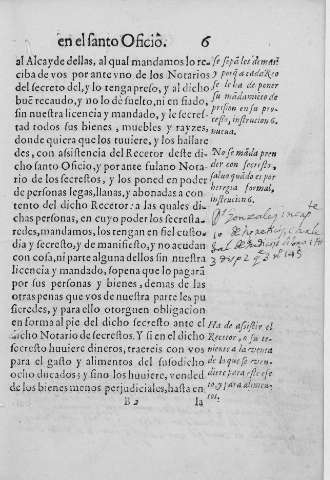 en el santo Oficio. 6
al Alcayde dellas, al qual mandamos lo re-
ciba de vos por ante vno de los Notarios
del secreto del, y lo tenga preso, y al dicho
buē recaudo, y no lo dè suelto, ni en fiado,
sin nuestra licencia y mandado, y le secres-
tad todos sus bienes, muebles y rayzes,
donde quiera que los tuuiere, y los hallare
des, con assistencia del Recetor deste di-
cho santo Oficio, y por ante fulano Nota-
rio de los secrestos, y los poned en poder
de personas legas, llanas, y abonadas a con-
tento del dicho Recetor: a las quales di-
chas personas, en cuyo poder los secresta-
redes, mandamos, los tengan en fiel custo-
dia y secresto, y de manifiesto, y no acudan
con cosa, ni parte alguna dellos sin nuestra
licencia y mandado, sopena que lo pagarà
por sus personas y bienes, demas de las
otras penas que vos de nuestra parte les pu
sieredes, y para ello otorguen obligacion
en forma al pie del dicho secresto ante el
dicho Notario de secrestos. Y si en el dicho
secresto huuiere dineros, traereis con vos
para el gasto y alimentos del susodicho
ocho ducados; y sino los huuiere, vended
de los bienes menos perjudiciales, hasta en
B 2 la
se
y porq a cada Reo
se le ha de poner
su mādamiēto de
prision en su pro-
cesso, instrucion 6.
nueua.
No se māda pren
der con secresto,
saluo quādo es por
heregia formal,
instrucion 6.
Ha de assistir el
Recetor, o su te-
niente a la venta
de lo que se ven-
diere para este efe
to, y para alimen-
tos.